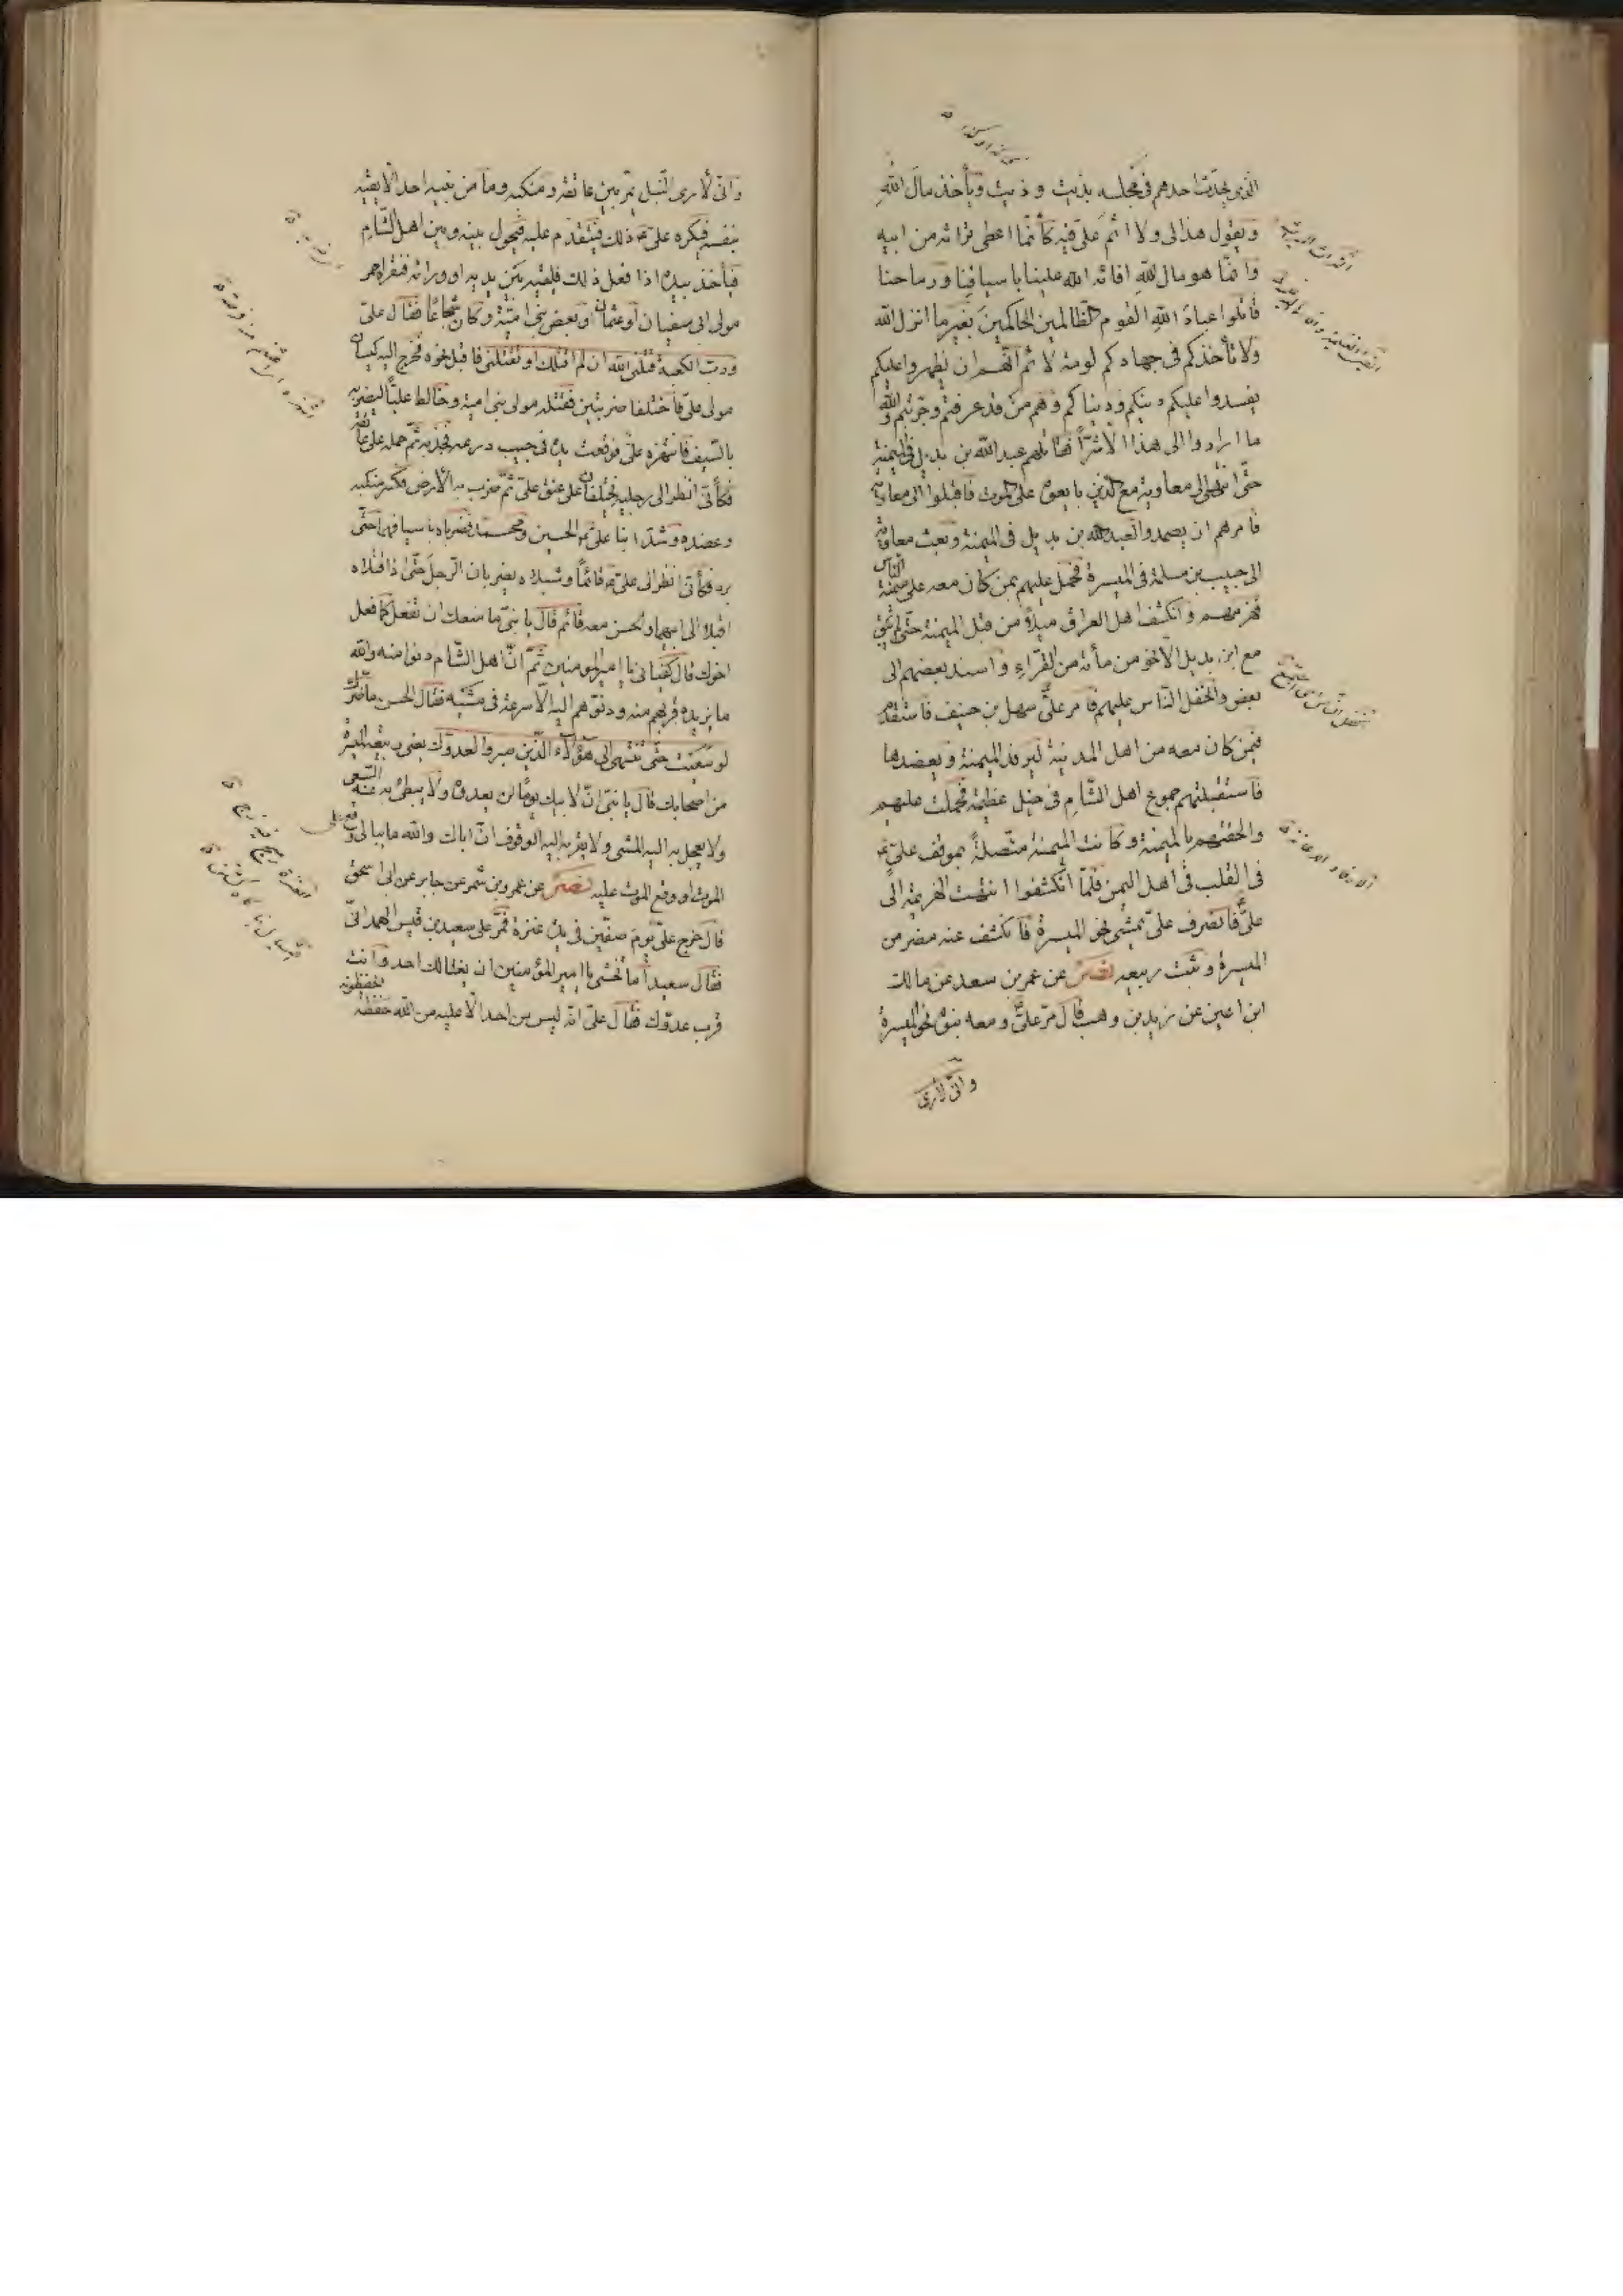 الذى يحدّث احدهم فى مجلسه بذيت و ذيت ويأخذ مال الله
ويقول هذا لى ولا اثم علىّ فيه كأنّما اعطى تراثه من ابيه
وانّما هو مال الله افائه الله علينا باسيافنا ورماحنا
قاتلوا عباد الله القوم الظالمين الحاكمين بغير ما انزل الله
ولا تأخذكم فى جهادكم لومة لائم انّهم ان يظهروا عليكم
يفسدوا عليكم دينكم ودنياكم وهم من قد عرفتم وجرّبتم والله
ما ارادوا الى هذا الّا شرّاً فقاتلهم عبدالله بن بديل فى الميمنة
حتّى انتهى الى معاوية مع الذين بايعوه على الموت فاقبلوا الى معاوية
فامرهم ان يصمدوا لعبدالله بن بديل فى الميمنة وبعث معاوية
الى حبيب بن مسلمة فى الميسرة فحمل عليهم بمن كان معه على ميمنة الناس
فهزمهم وانكشف اهل العراق ميلةً من قبل الميمنة حتّى لم يبق
مع ابن بديل الّا نحو من مأئة من القرّاء واسند بعضهم الى
بعض وانجفل النّاس عليهم فامر علىّ سهل بن حنيف فاستقدم
فيمن كان معه من اهل المدينة ليرفد الميمنة ويعضدها
فاستقبلتهم جموع اهل الشّام فى خيل عظيمة فحملت عليهم
والحقتهم بالميمنة وكانت الميمنة متّصلةً بموقف علىّ ع
فى القلب فى اهل اليمن فلمّا انكشفوا انتهت الهزيمة الى
علىّ فانصرف علىّ يمشى نحو الميسرة فانكشف عنه مضر من
الميسرة وثبت ربيعه نصر عن عمر بن سعد عن مالك
ابن اعين عن زيد بن وهب قال مرّ علىّ ومعه بنوه نحو الميسرة
وانّى لأرى
وانّى لأرى النّبل يمرّ بين عاتقه ومنكبه وما من بنيه احد الّا يقيه
بنفسه فيكره علىّ ع ذلك فيتقدّم عليه فيحول بينه وبين اهل الشّام
فيأخذ بيده اذا فعل ذلك فيلقيه بين يديه او ورائه فبصر به احمر
مولى ابى سفيان او عثمان او بعض بنى اميّة وكان شجاعًا فقال علىّ
وربّ الكعبة قتلنى الله ان لم اقتلك او تقتلنى فاقبل نحوه فخرج اليه كيسان
مولى علىّ فاختلفا ضربتين فقتله مولى بنى امية وخالط عليّاً ليضربه
بالسّيف فانتهزه علىّ فوقعت يده فى جيب درعه فجذبه ثمّ حمله على عاتقه
فكأنّى انظر الى رجليه تختلفان على عنق علىّ ثمّ ضرب به الأرض فكسر منكبه
وعضده وشدّ ابنا علىّ ع الحسين ومحمد فضرباه باسيافهما حتّى
برد فكأنّى انظر الى علىّ ع قائماً وشبلاه يضربان الرّجل حتّى اذا قتلاه
اقبلا الى ابيهما والحسن معه قائم قال يا بنىّ ما منعك ان تفعل كما فعل
اخوك قال كفيانى يا امير المومنين ثمّ انّ اهل الشّام دنوا منه والله
ما يزيده قربهم منه ودنوّهم اليه الّا سرعة فى مشيه فقال الحسن ما ضرّك
لو سعيت حتّى تنتهى الى هؤلآء الّذين صبروا لعدوّك يعنى ربيعة الميسرة
من اصحابك قال يا بنىّ انّ لابيك يومًا لن يعدوه ولا يبطئ به عنه السّعى
ولا يعجل به اليه المشى ولا يقرّبه اليه الوقوف انّ اباك والله ما يبالى وقع على
الموت او وقع الموت عليه نصر عن عمرو بن شمر عن جابر عن ابى اسحق
قال خرج علىّ يوم صفّين فى يده عنزة فمرّ على سعيد بن قيس الهمدانىّ
فقال سعيد أما تخشى يا امير المؤمنين ان يغتالك احد وانت
قرب عدوّك فقال علىّ انّه ليس من احد الّا عليه من الله حفظة يحفظونه